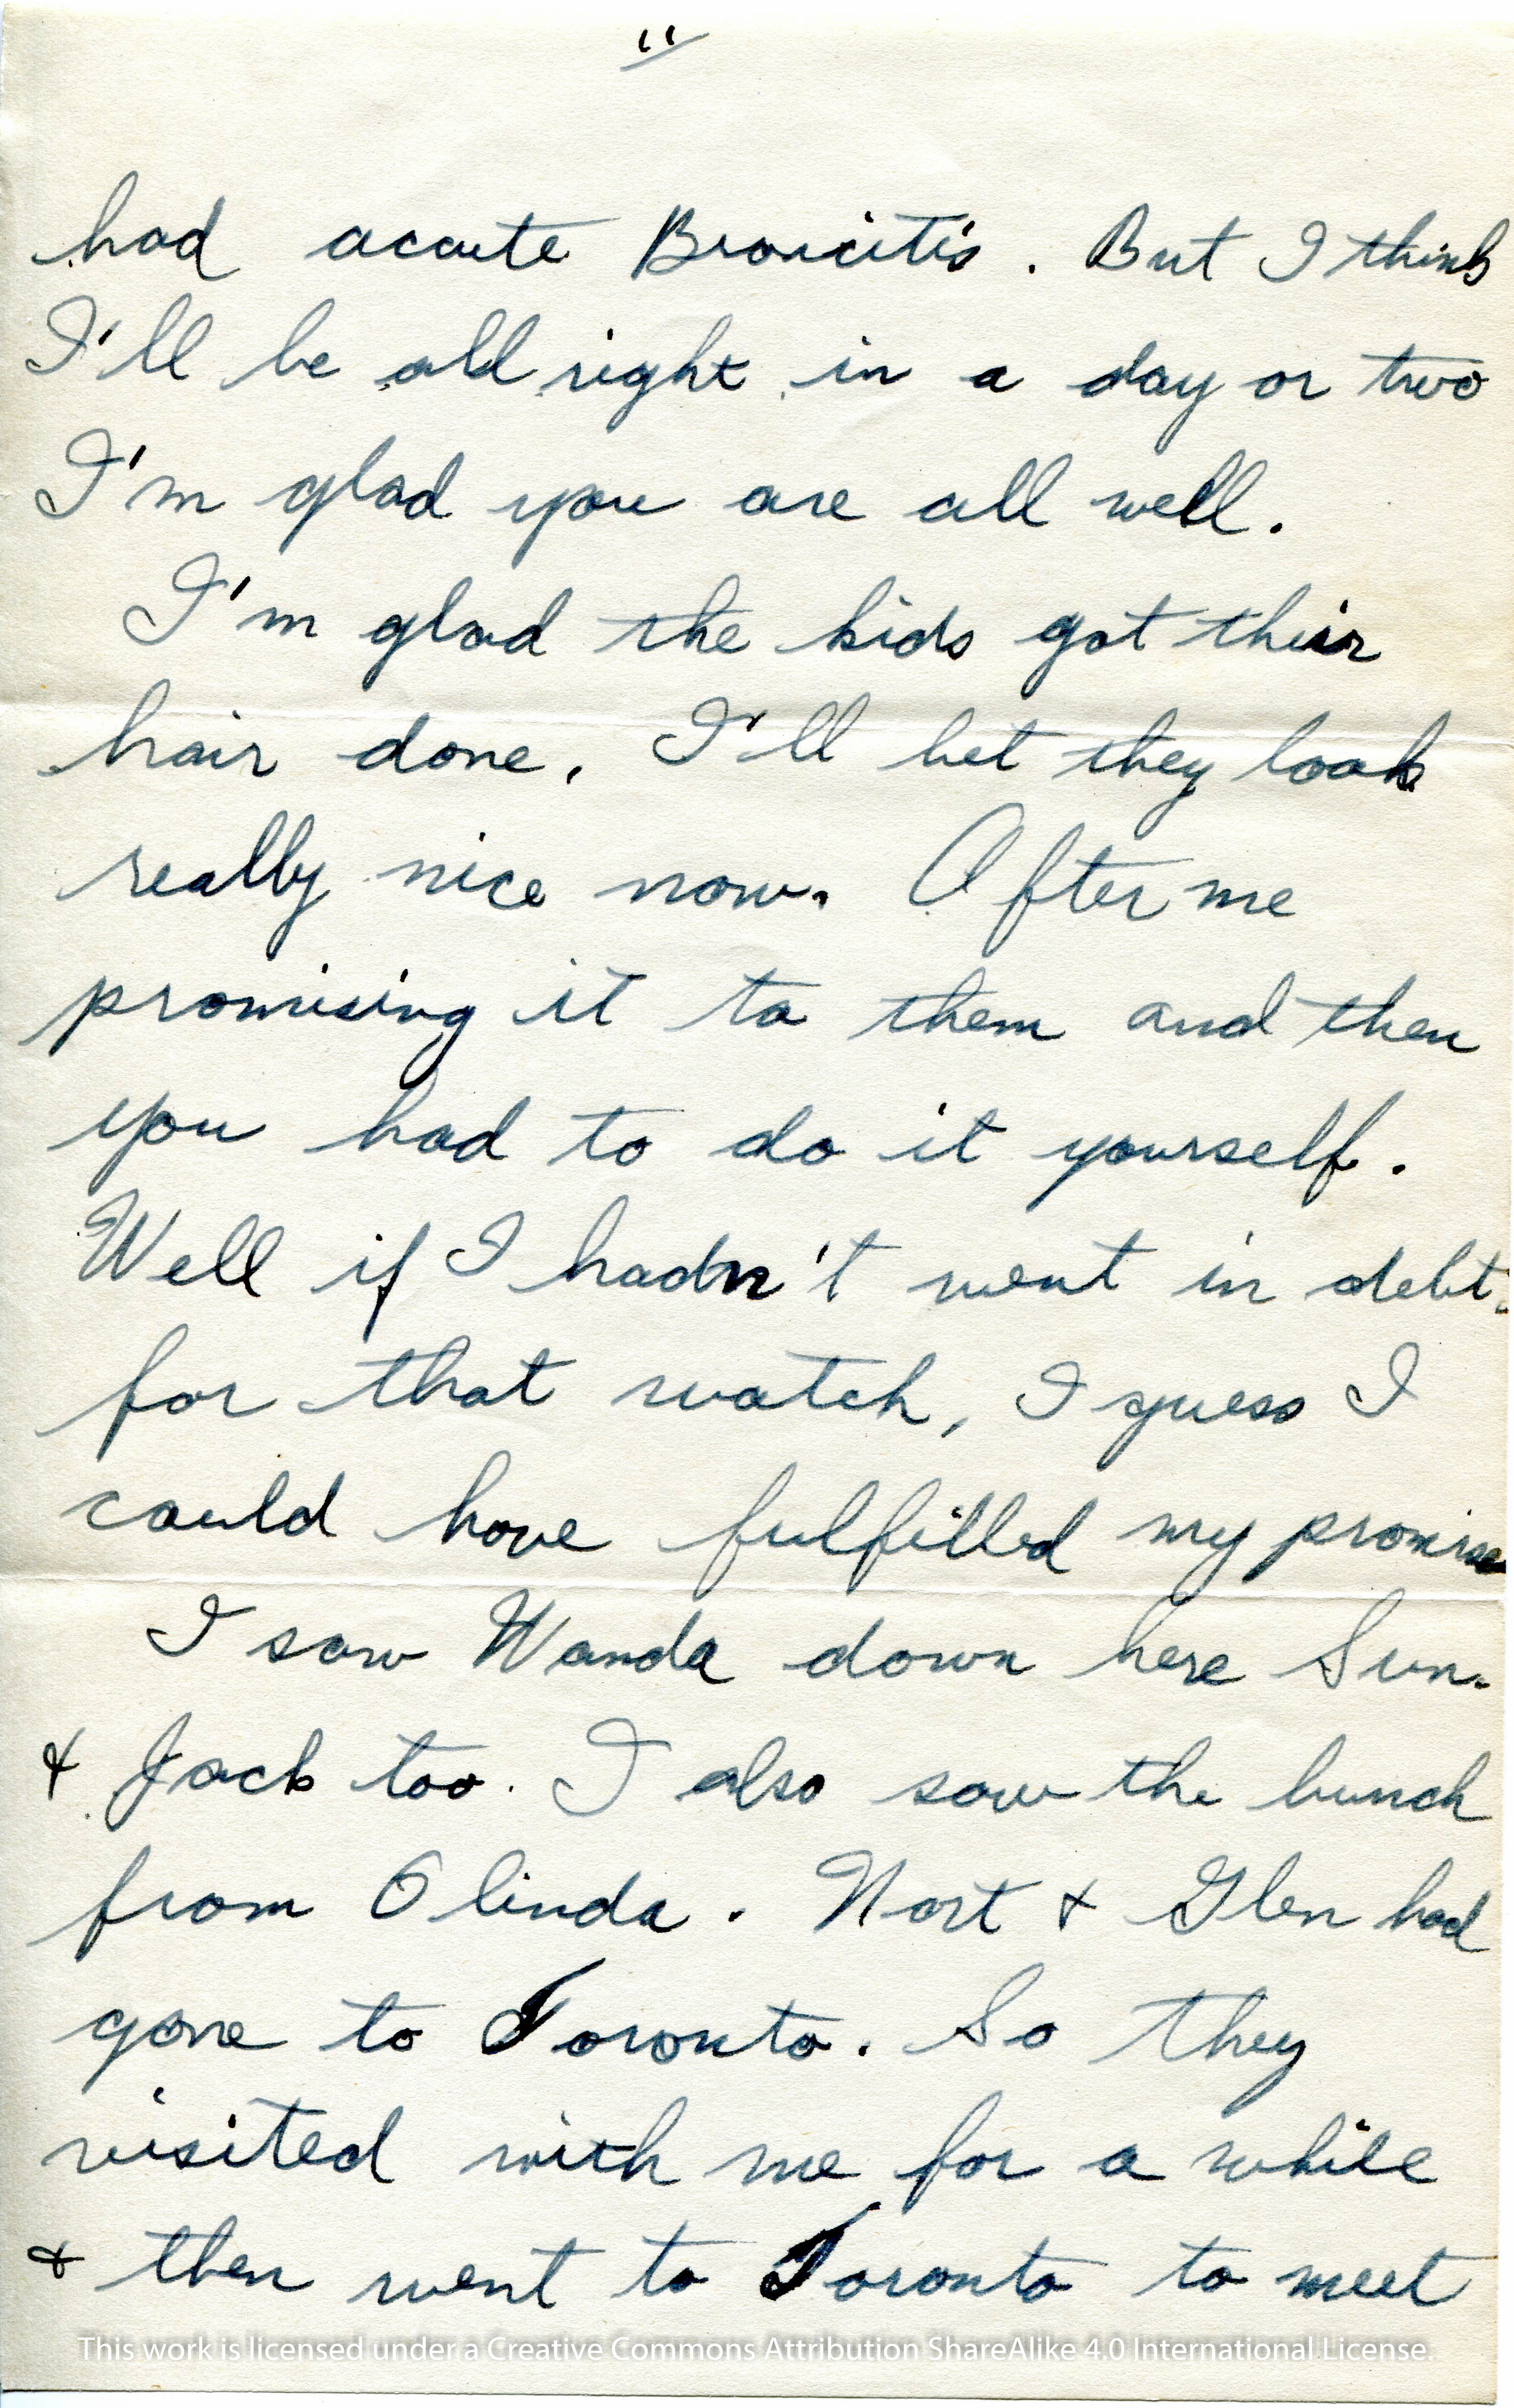 "
had accute Broncitis. But I think
I'll be all right in a day or two
I'm glad you are all well.
I'm glad the kids got their
hair done. I'll bet they look
really nice now. After me
promising it to them and then
you had to do it yourself.
Well if I hadn't went in debt
for that watch, I guess I
could have fulfilled my promise
I saw Wanda down here Sun.
& Jack too. I also saw the bunch
from Olinda. Nort & Glen had
gone to Toronto. So they
visited with me for a while
& then went to Toronto to meet
This work is licensed under a Creative Commons Attribution ShareAlike 4.0 International License.